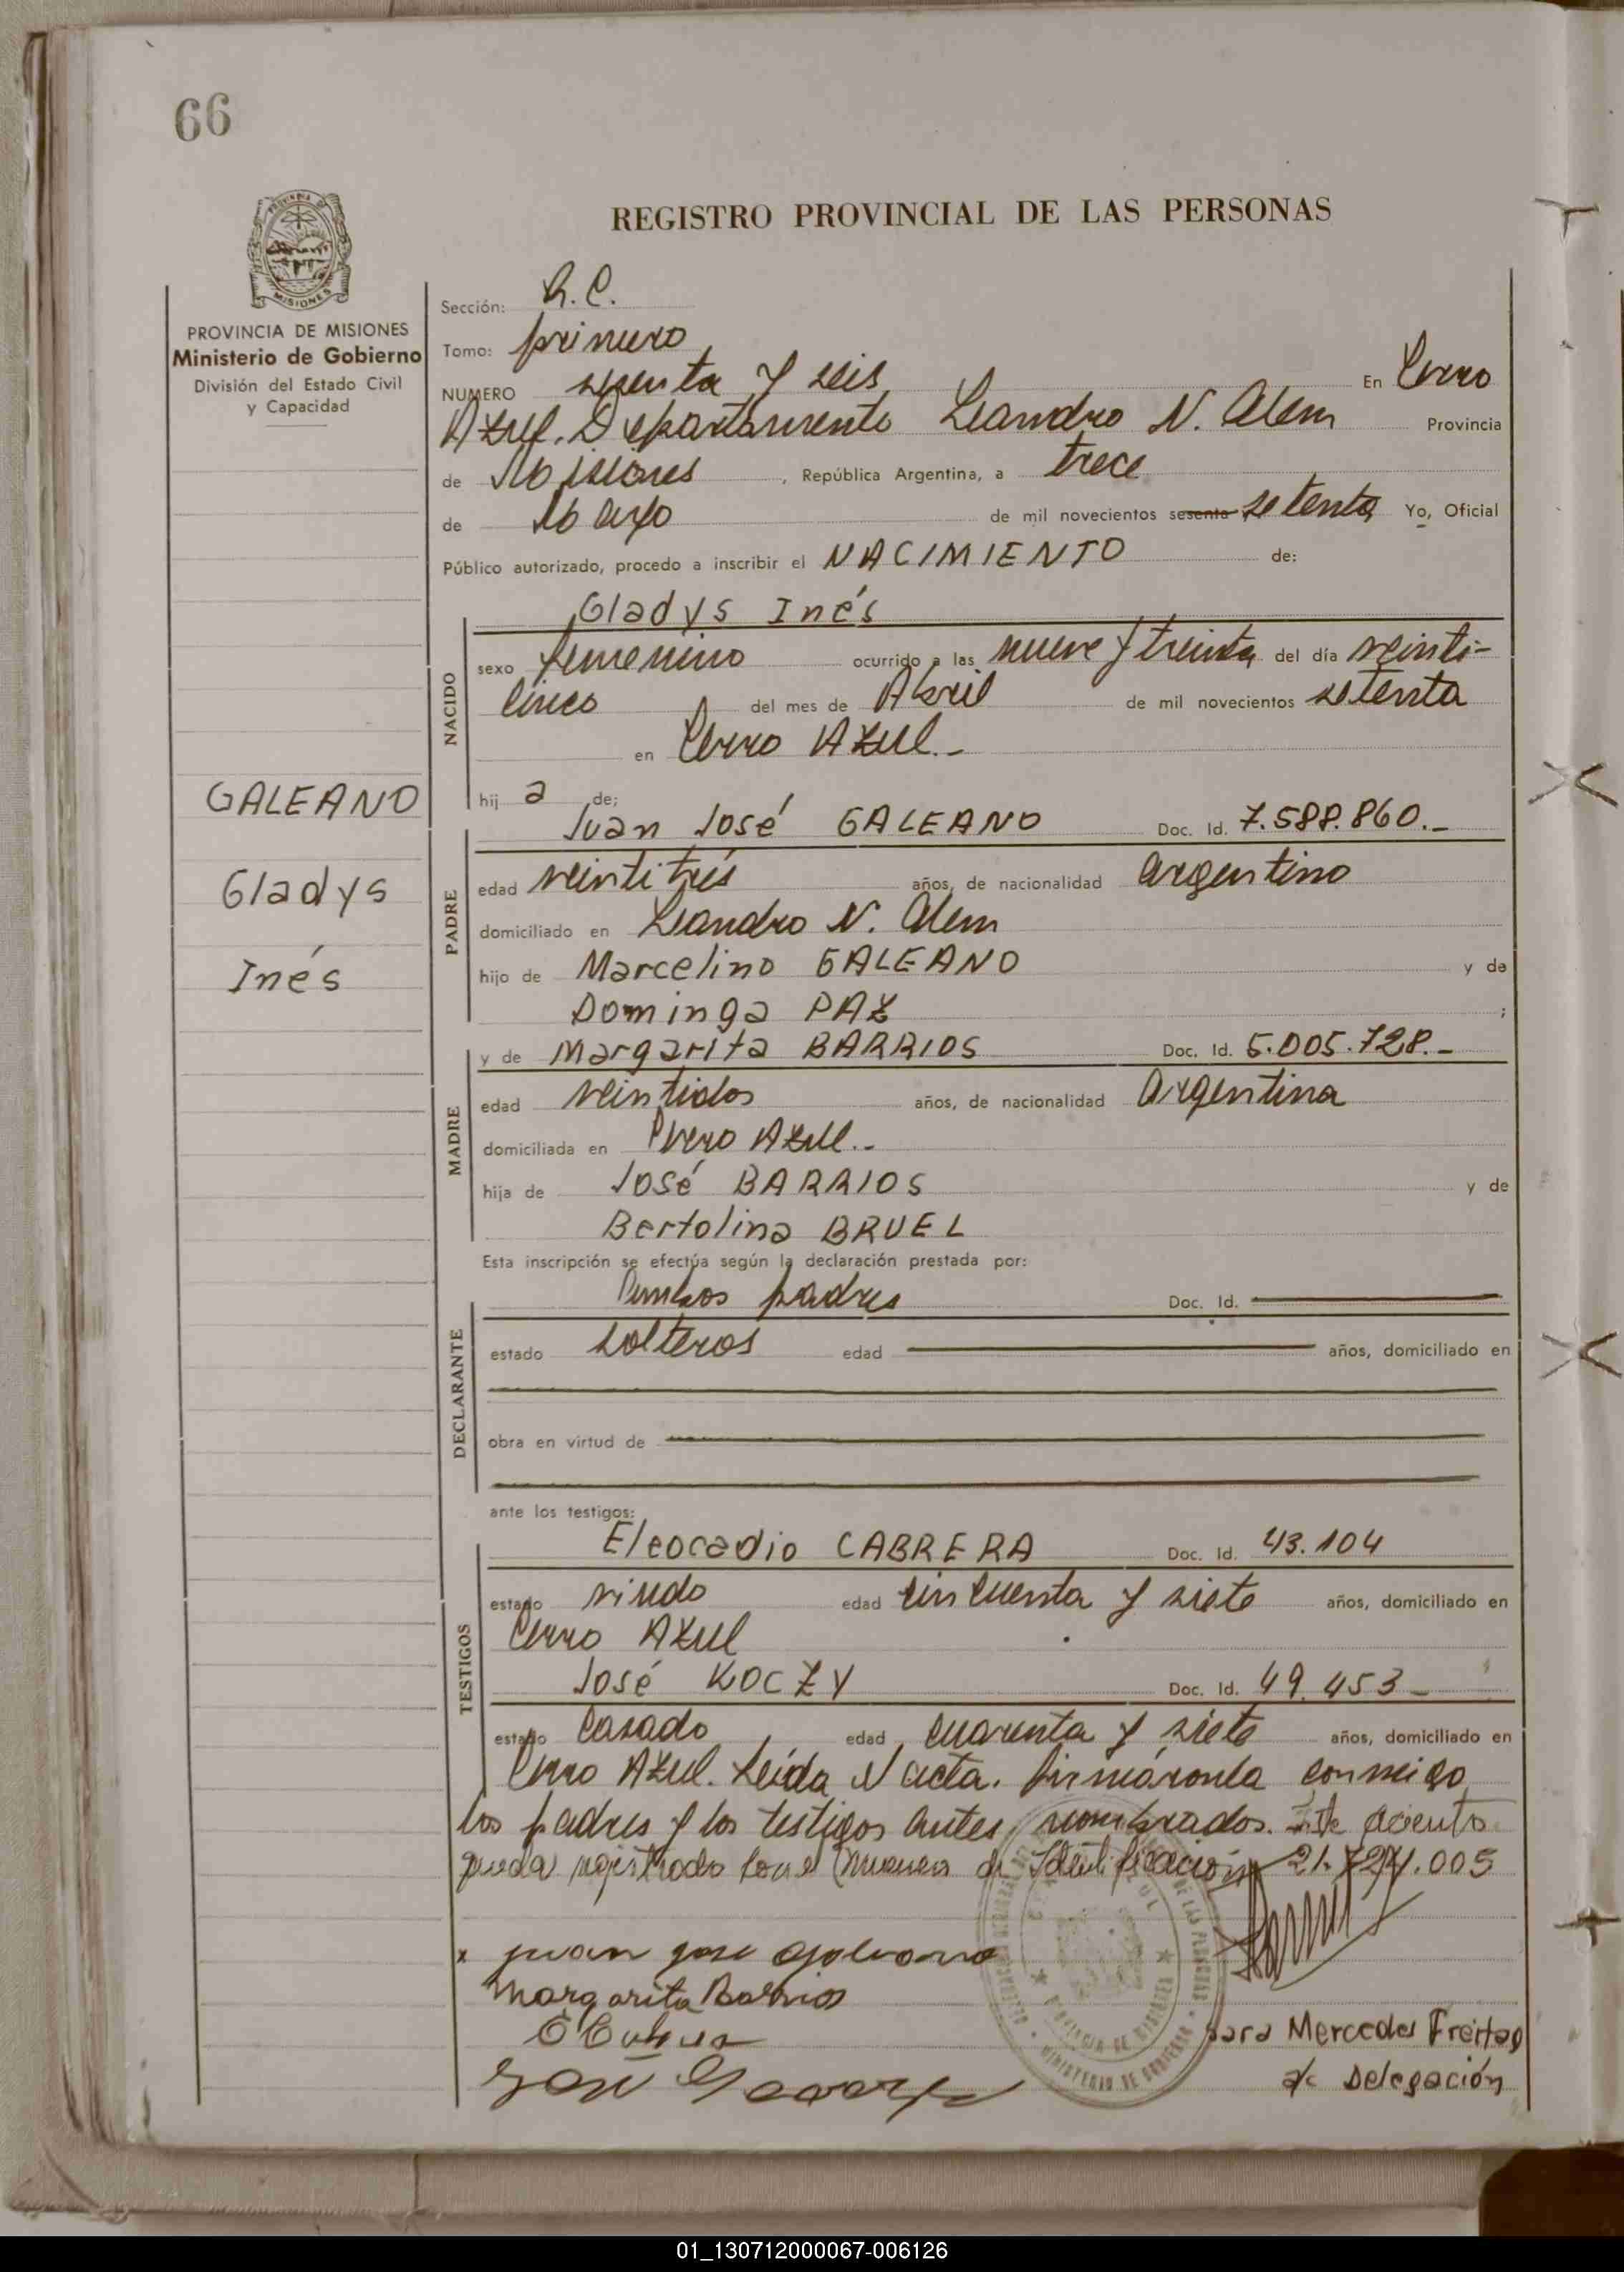 66
REGISTRO PROVINCIAL DE LAS PERSONAS
MISIONES
PROVINCIA DE MISIONES
Ministerio de Gobierno
División del Estado Civil
y Capacidad
GALEANO
Gladys
Inés
Sección: R.C.
Tomo: primero
NUMERO sesenta y seis En Cerro
Azul. Departamento Leandro N. Alem Provincia
de Misiones, República Argentina, a trece
de Mayo de mil novecientos sesenta setenta Yo, Oficial
Público autorizado, procedo a inscribir el NACIMIENTO de:
NACIDO
Gladys Inés
sexo femenino ocurrido a las nueve y treinta del día veinti-
cinco del mes de Abril de mil novecientos setenta
en Cerro Azul.-
hij a de;
PADRE
Juan José GALEANO Doc. Id. 7.588.860.-
edad veintitrés años, de nacionalidad argentino
domiciliado en Leandro N. Alem
hijo de Marcelino GALEANO y de
Dominga PAZ ;
MADRE
y de Margarita BARRIOS Doc. Id. 5.005.728.-
edad veintidos años, de nacionalidad Argentina
domiciliada en Cerro Azul.-
hija de José BARRIOS y de
Bertolina BRUEL
Esta inscripción se efectúa según la declaración prestada por:
DECLARANTE
Ambos padres Doc. Id.
estado solteros edad años, domiciliado en
obra en virtud de
ante los testigos:
TESTIGOS
Eleocadio CABRERA Doc. Id. 43.104
estado viudo edad cincuenta y siete años, domiciliado en
Cerro Azul
José KOCZY Doc. Id. 49.453-
estado casado edad cuarenta y siete años, domiciliado en
Cerro Azul. Leída el acta. firmáronla conmigo
los padres y los testigos antes nombrados. Este asiento
queda registrado con el número de Identificación 21.724.005
x juan jose galeano
Margarita Barrios
Sara Mercedes Freitag
a/c Delegación
PROVINCIA DE MISIONES
MINISTERIO DE GOBIERNO
01_130712000067-006126